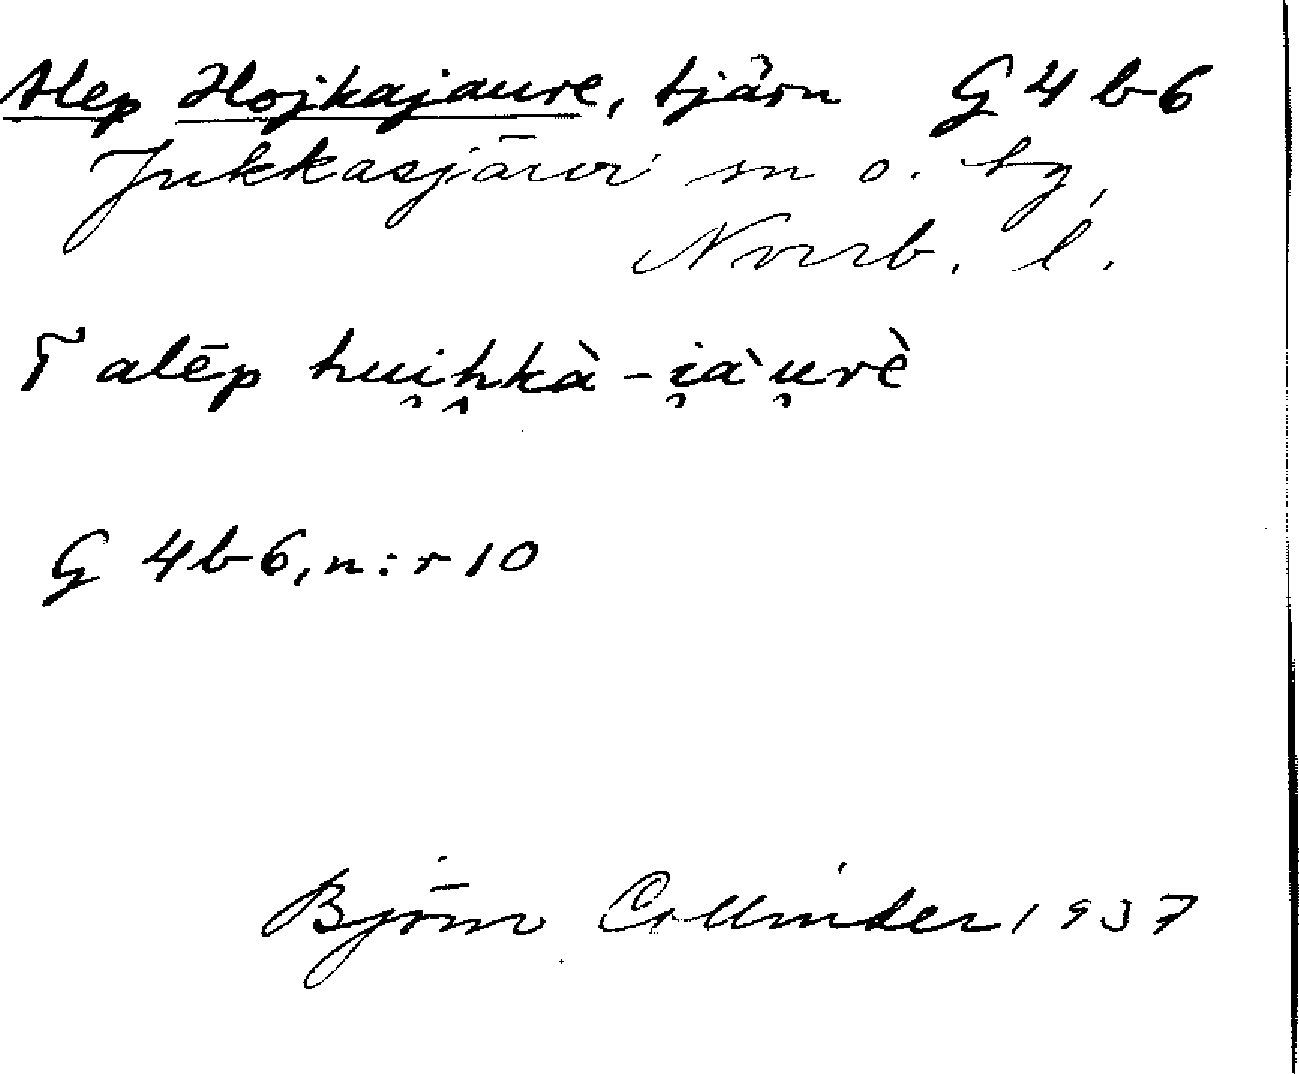 Alep Hojkajaure, tjärn G 4 b-6
Jukkasjärvi sn o. tg,
Norrb. l.
T alēp hui̯h̭kà-i̯a`u̯rè
G 4b-6, n:r 10
Björn Collinder 1937